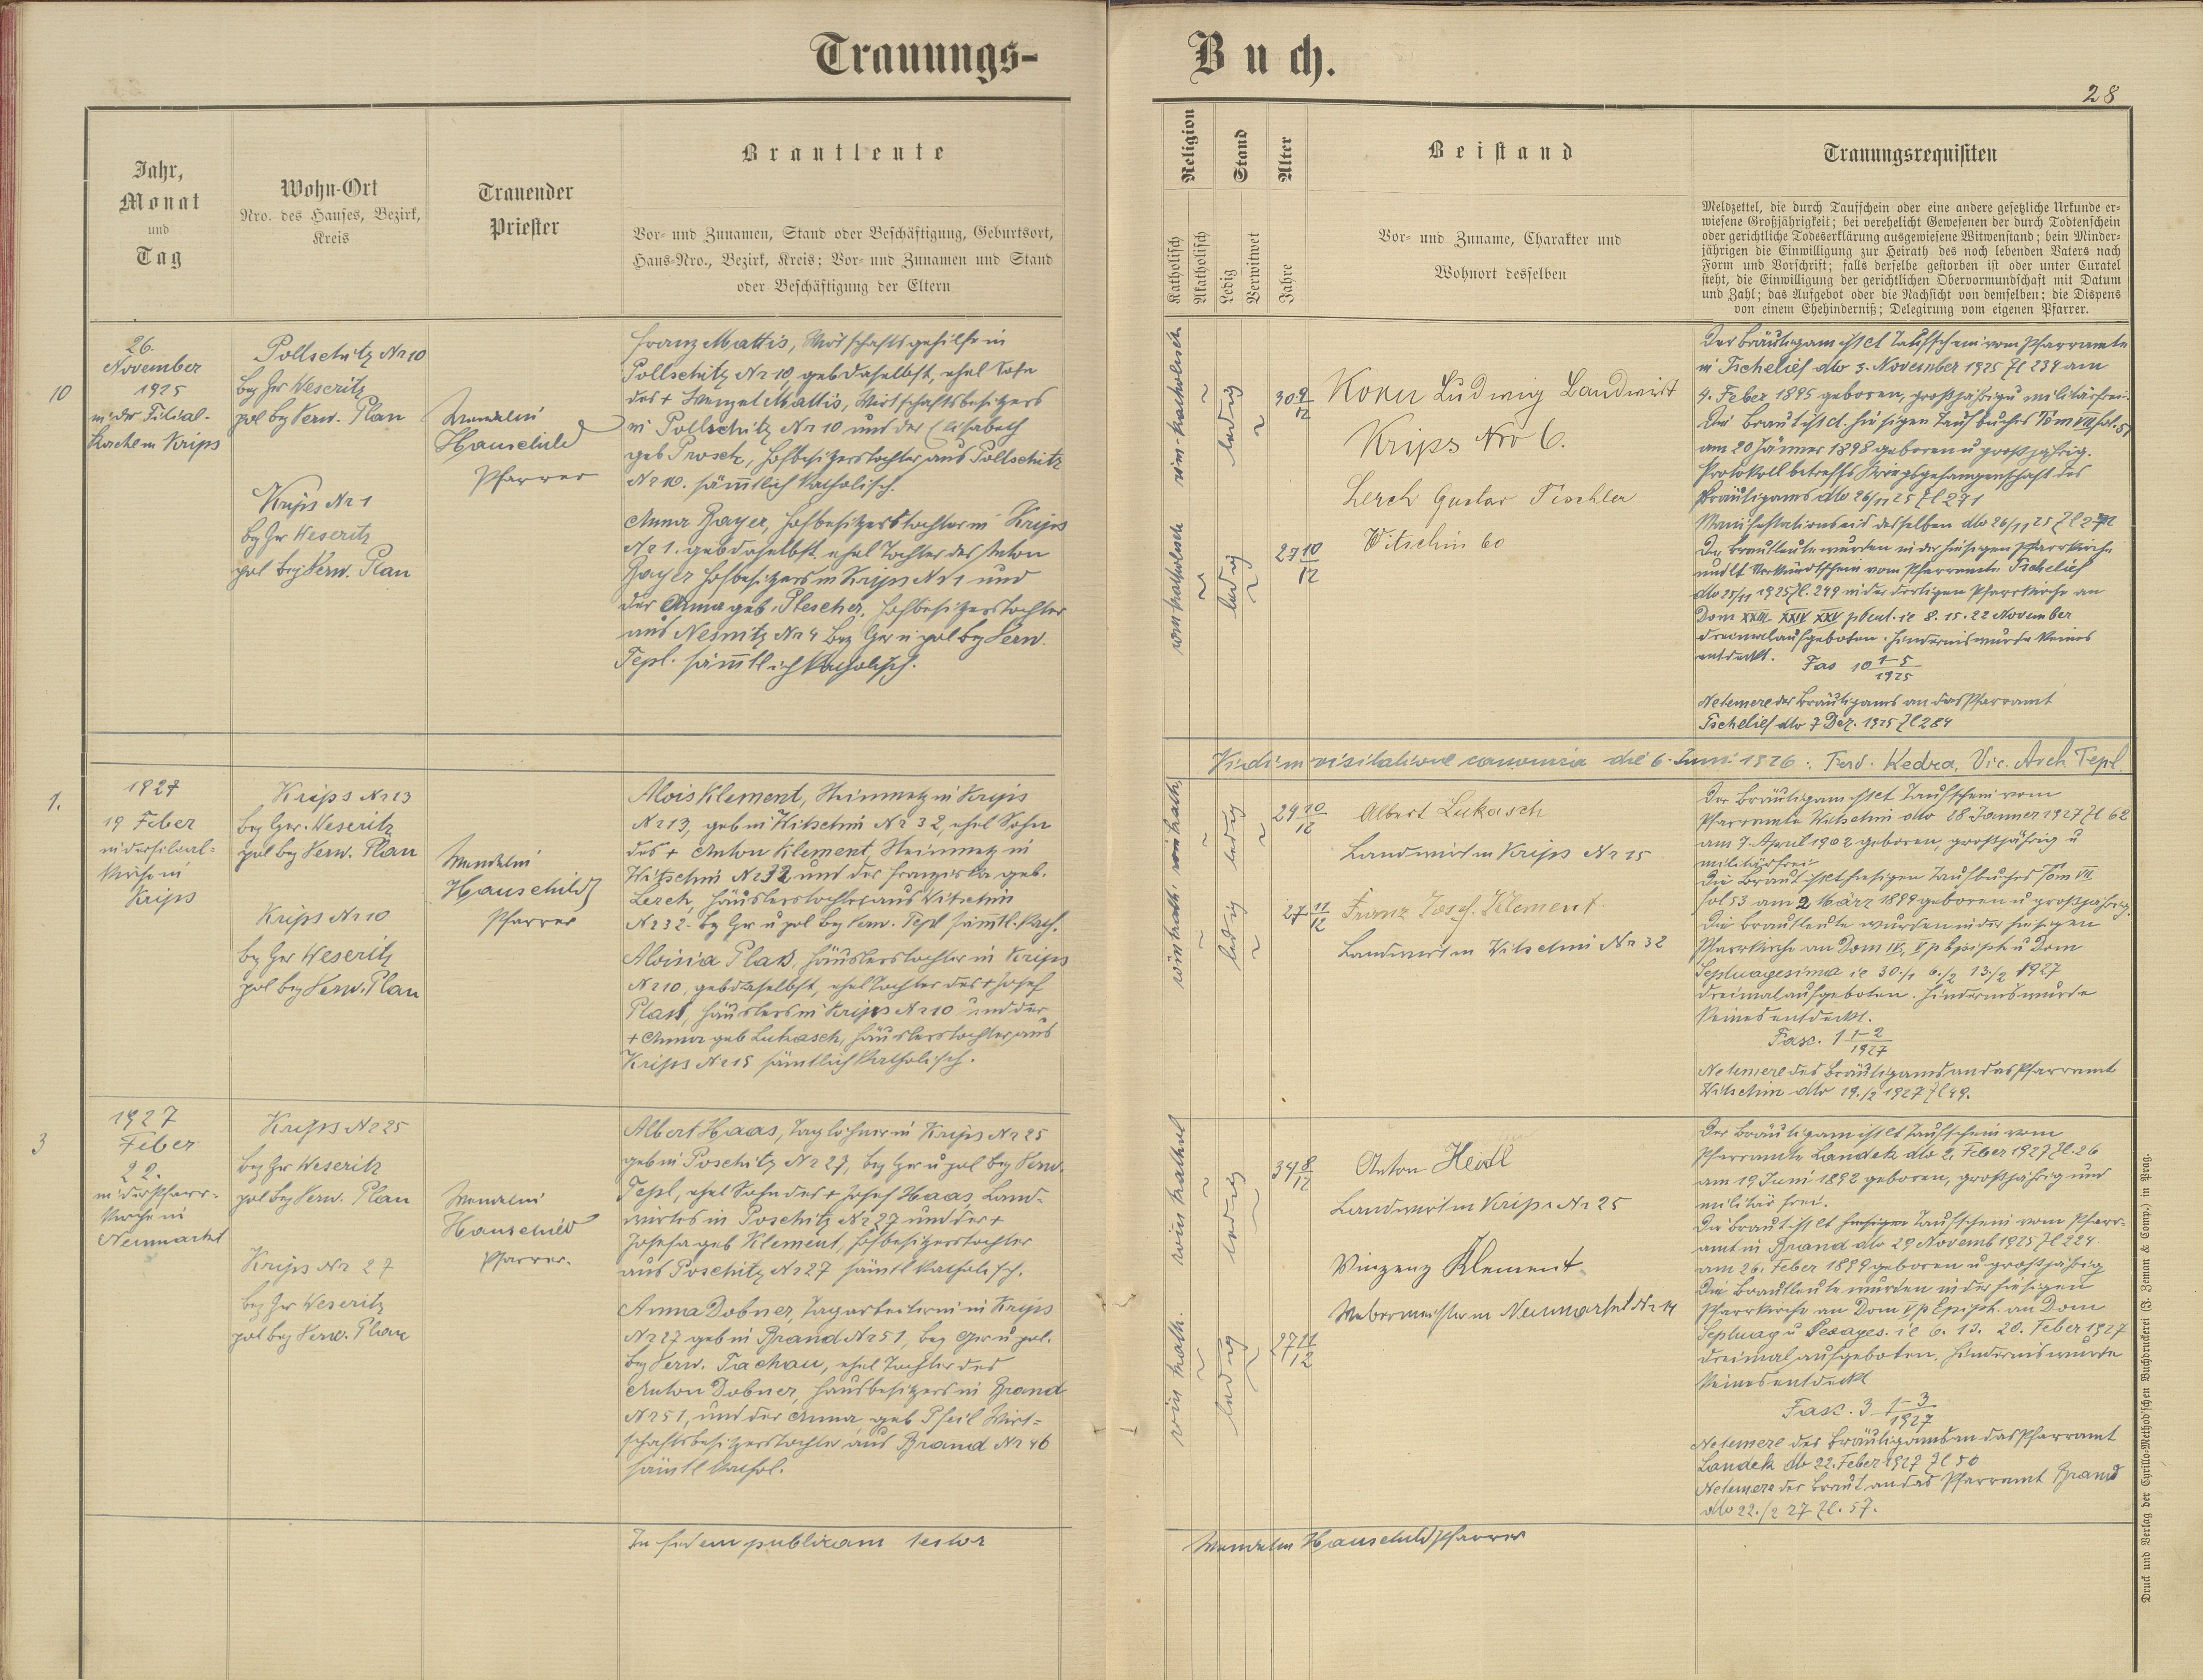 Trauungs-
Buch.
28
Jahr,
Monat
und
Tag
Wohn-Ort
Nro. des Hauses, Bezirk,
Kreis
Trauender
Priester
Brautleute
Vor- und Zunamen, Stand oder Beschäftigung, Geburtsort,
Haus-Nro., Bezirk, Kreis; Vor- und Zunamen und Stand
oder Beschäftigung der Eltern
Religion
Katholisch
Akatholisch
Stand
Ledig
Verwitwet
Alter
Jahre
Beistand
Vor- und Zuname, Charakter und
Wohnort desselben
Trauungsrequisiten
Meldzettel, die durch Taufschein oder eine andere gesetzliche Urkunde er-
wiesene Großjährigkeit; bei verehelicht Gewesenen der durch Todtenschein
oder gerichtliche Todeserklärung ausgewiesene Witwenstand; beim Minder-
jährigen die Einwilligung zur Heirath des noch lebenden Vaters nach
Form und Vorschrift; falls derselbe gestorben ist oder unter Curatel
steht, die Einwilligung der gerichtlichen Obervormundschaft mit Datum
und Zahl; das Aufgebot oder die Nachsicht von demselben; die Dispens
von einem Ehehinderniß; Delegirung vom eigenen Pfarrer.
10
26.
November
1925
in der Filial-
kirche in Krips
Pollschitz Nr 10
Bez Ger Weseritz
pol Bez Verw. Plan
Krips Nr 1
Bez Ger Weseritz
pol Bez Verw. Plan
Wendelin
Hauschild
Pfarrer
Franz Mattis, Wirtschaftsgehilfe in
Pollschitz Nr 10, geb daselbst, ehel Sohn
des + Wenzel Mattis, Wirtschaftsbesitzers
in Pollschitz Nr 10 und der Elisabeth
geb Prosch, Hofbesitzerstochter aus Pollschitz
Nr 10. sämtlich katholisch.
Anna Bayer, Hofbesitzerstochter in Krips
Nr 1. geb daselbst ehel Tochter des Anton
Bayer Hofbesitzers in Krips Nr 1 und
der Anna geb. Plescher, Hofbesitzerstochter
aus Nesnitz Nr 4 Bez Ger u pol Bez Verw.
Tepl. sämtlich katholisch.
röm-katholisch
röm katholisch
ledig
ledig
30 9/12
27 10/12
Korn Ludwig Landwirt
Krips Nro 6.
Lerch Gustav Tischler
Witschin 60
Der Bräutigam ist lt Taufschein vom Pfarramte
in Tschelief dto 3. November 1925 Zl 234 am
4. Feber 1895 geboren, großjährig u militärfrei.
Die Braut ist l. hiesigen Taufbuches Tom VII fol. 51
am 20 Jänner 1898 geboren u großjährig.
Protokoll betreffs Kriegsgefangenschaft des
Bräutigams dto 26/11 25 Zl 271
Manifestationseid desselben dto 26/11 25 Zl 272
Die Brautleute wurden in der hiesigen Pfarrkirche
und lt Verkündschein vom Pfarramte Tschelief
dto 25/11 1925 Zl. 249 in der dortigen Pfarrkirche an
Dom XXIII XXIV XXV p Pent. ie 8. 15. 22 November
dreimal aufgeboten. Hindernis wurde keines
entdeckt. Fas 10 1-5/1925
Netemere des Bräutigams an das Pfarramt
Tschelief dto 7 Dez. 1925 Zl 284
Vidi in visitatione canonica die 6. Juni 1926: Ferd. Kedra, Vic. Arch Tepl
1.
1927
19 Feber
in der Filial-
kirche in
Krips
Krips Nr 13
Bez Ger. Weseritz
pol Bez Verw. Plan
Krips Nr 10
Bez Ger Weseritz
pol Bez Verw. Plan
Wendelin
Hauschild
Pfarrer
Alois Klement, Steinmetz in Krips
Nr 13, geb in Witschin Nr 32, ehel Sohn
des + Anton Klement Steinmetz in
Witschin Nr 32 und der Franziska geb.
Lerch, Häuslerstochter aus Witschin
Nr 32. Bz Ger u pol Bz Verw. Tepl sämtl. kath.
Aloisia Plaß, Häuslerstochter in Krips
Nr 10, geb daselbst, ehel Tochter des + Josef
Plaß, Häuslers in Krips Nr 10 und der
+ Anna geb Lukasch, Häuslerstochter aus
Krips Nr 15 sämtlich katholisch.
röm kath.
röm kath.
ledig
ledig
24 10/12
27 11/12
Albert Lukasch
Landwirt in Krips Nr 15
Franz Josef Klement.
Landwirt in Witschin Nr 32
Der Bräutigam ist lt Taufschein vom
Pfarramte Witschin dto 28 Jänner 1927 Zl 62
am 7. April 1902 geboren, großjährig u
militärfrei
Die Braut ist lt hiesigen Taufbuches Tom VII
fol 53 am 2 März 1899 geboren u großjährig.
Die Brautleute wurden in der hiesigen
Pfarrkirche an Dom IV, V p Epiph u Dom
Septuagesima ie 30./1 6./2 13./2 1927
dreimal aufgeboten. Hindernis wurde
keines entdeckt.
Fasc. 1 1-2/1927
Netemere des Bräutigams an das Pfarramt
Witschin dto 19./2 1927 Zl 49.
3
1927
Feber
22.
in der Pfarr-
kirche in
Neumarkt
Krips Nr 25
Bez Ger Weseritz
pol Bez Verw. Plan
Krips Nr 27
Bez Ger Weseritz
pol Bez Verw. Plan
Wendelin
Hauschild
Pfarrer.
Albert Haas, Taglöhner in Krips Nr 25
geb in Poschitz Nr 27, Bez Ger u pol Bez Verw.
Tepl, ehel Sohn des + Josef Haas, Land-
wirtes in Poschitz Nr 27 und der +
Josefa geb Klement, Hofbesitzerstochter
aus Poschitz Nr 27 sämtl katholisch.
Anna Dobner, Tagarbeiterin in Krips
Nr 27 geb in Brand Nr 51, Bez Ger u pol.
Bez Verw. Tachau, ehel Tochter des
Anton Dobner, Hausbesitzers in Brand
Nr 51, und der Anna geb Pfeil Wirt-
schaftsbesitzerstochter aus Brand Nr 46
sämtl kathol.
röm kathol
röm kath.
ledig
ledig
34 8/12
27 11/12
Anton Heidl
Landwirt in Krips Nr 25
Vinzenz Klement
Webermeister in Neumarkt Nr 14
Der Bräutigam ist lt Taufschein vom
Pfarramte Landek dto 2. Feber 1927 Zl. 26
am 19 Juni 1892 geboren, großjährig und
militär frei.
Die Braut ist lt hiesigen Taufschein vom Pfarr-
amt in Brand dto 29 Novemb 1925 Zl 224
am 26. Feber 1899 geboren u großjährig
Die Brautleute wurden in der hiesigen
Pfarrkirche an Dom V p Epiph. an Dom
Septuag u Sexages. ie 6. 13. 20. Feber 1927
dreimal aufgeboten. Hindernis wurde
keines entdeckt
Fasc. 3 1-3/1927
Netemere des Bräutigams an das Pfarramt
Landek dto 22. Feber 1927 Zl 50
Netemere der Braut an das Pfarramt Brand
dto 22./2 27 Zl. 57.
In fidem publicam testor
Wendelin Hauschild Pfarrer
Druck und Verlag der Cyrillo-Method'schen Buchdruckerei (J. Zeman & Comp.) in Prag.